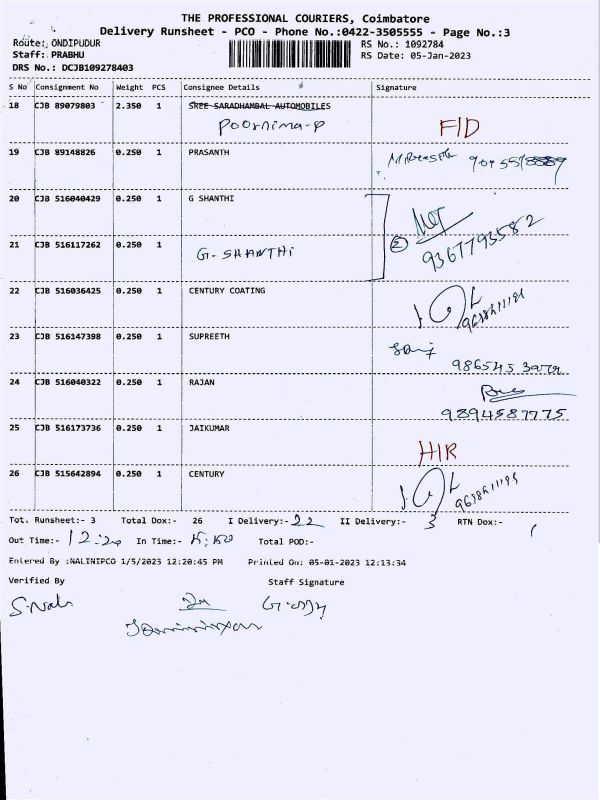 THE PROFESSIONAL COURIERS, Coimbatore
Delivery Runsheet - PCO - Phone No.:0422-3505555 - Page No.:3
Route: ONDIPUDUR
RS No.: 1092784
Staff: PRABHU
RS Date: 05-Jan-2023
DRS No.: DCJB109278403
S No Consignment No Weight PCS Consignee Details Signature
18 CJB 89079803 2.350 1 SREE SARADHAMBAL AUTOMOBILES
Poornima-P FID
19 CJB 89148826 0.250 1 PRASANTH
20 CJB 516040429 0.250 1 G SHANTHI
21 CJB 516117262 0.250 1 G. SHANTHi 2 9367793582
22 CJB 516036425 0.250 1 CENTURY COATING
23 CJB 516147398 0.250 1 SUPREETH
24 CJB 516040322 0.250 1 RAJAN
9894587775
25 CJB 516173736 0.250 1 JAIKUMAR
HIR
26 CJB 515642894 0.250 1 CENTURY
Tot. Runsheet:- 3 Total Dox:- 26 I Delivery:- 22 II Delivery:- 3 RTN Dox:- 1
Out Time:- 12:20 In Time:- Total POD:-
Entered By :NALINIPCO 1/5/2023 12:20:45 PM Printed On: 05-01-2023 12:13:34
Verified By Staff Signature